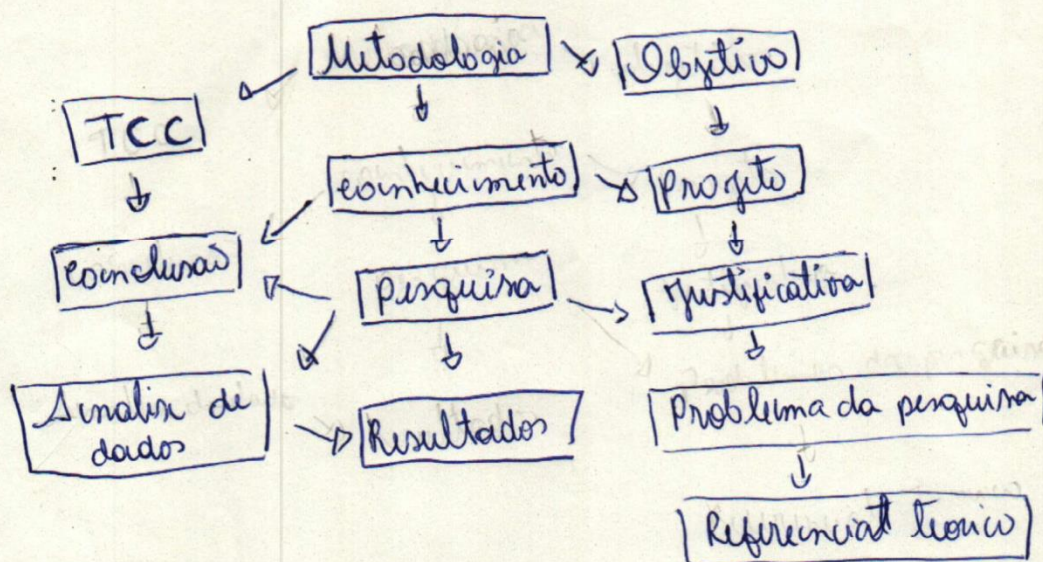 Metodologia
Objetivo
TCC
conhecimento
Projeto
conclusão
pesquisa
Justificativa
Analise de
dados
Resultados
Problema da pesquisa
Referencial teorico